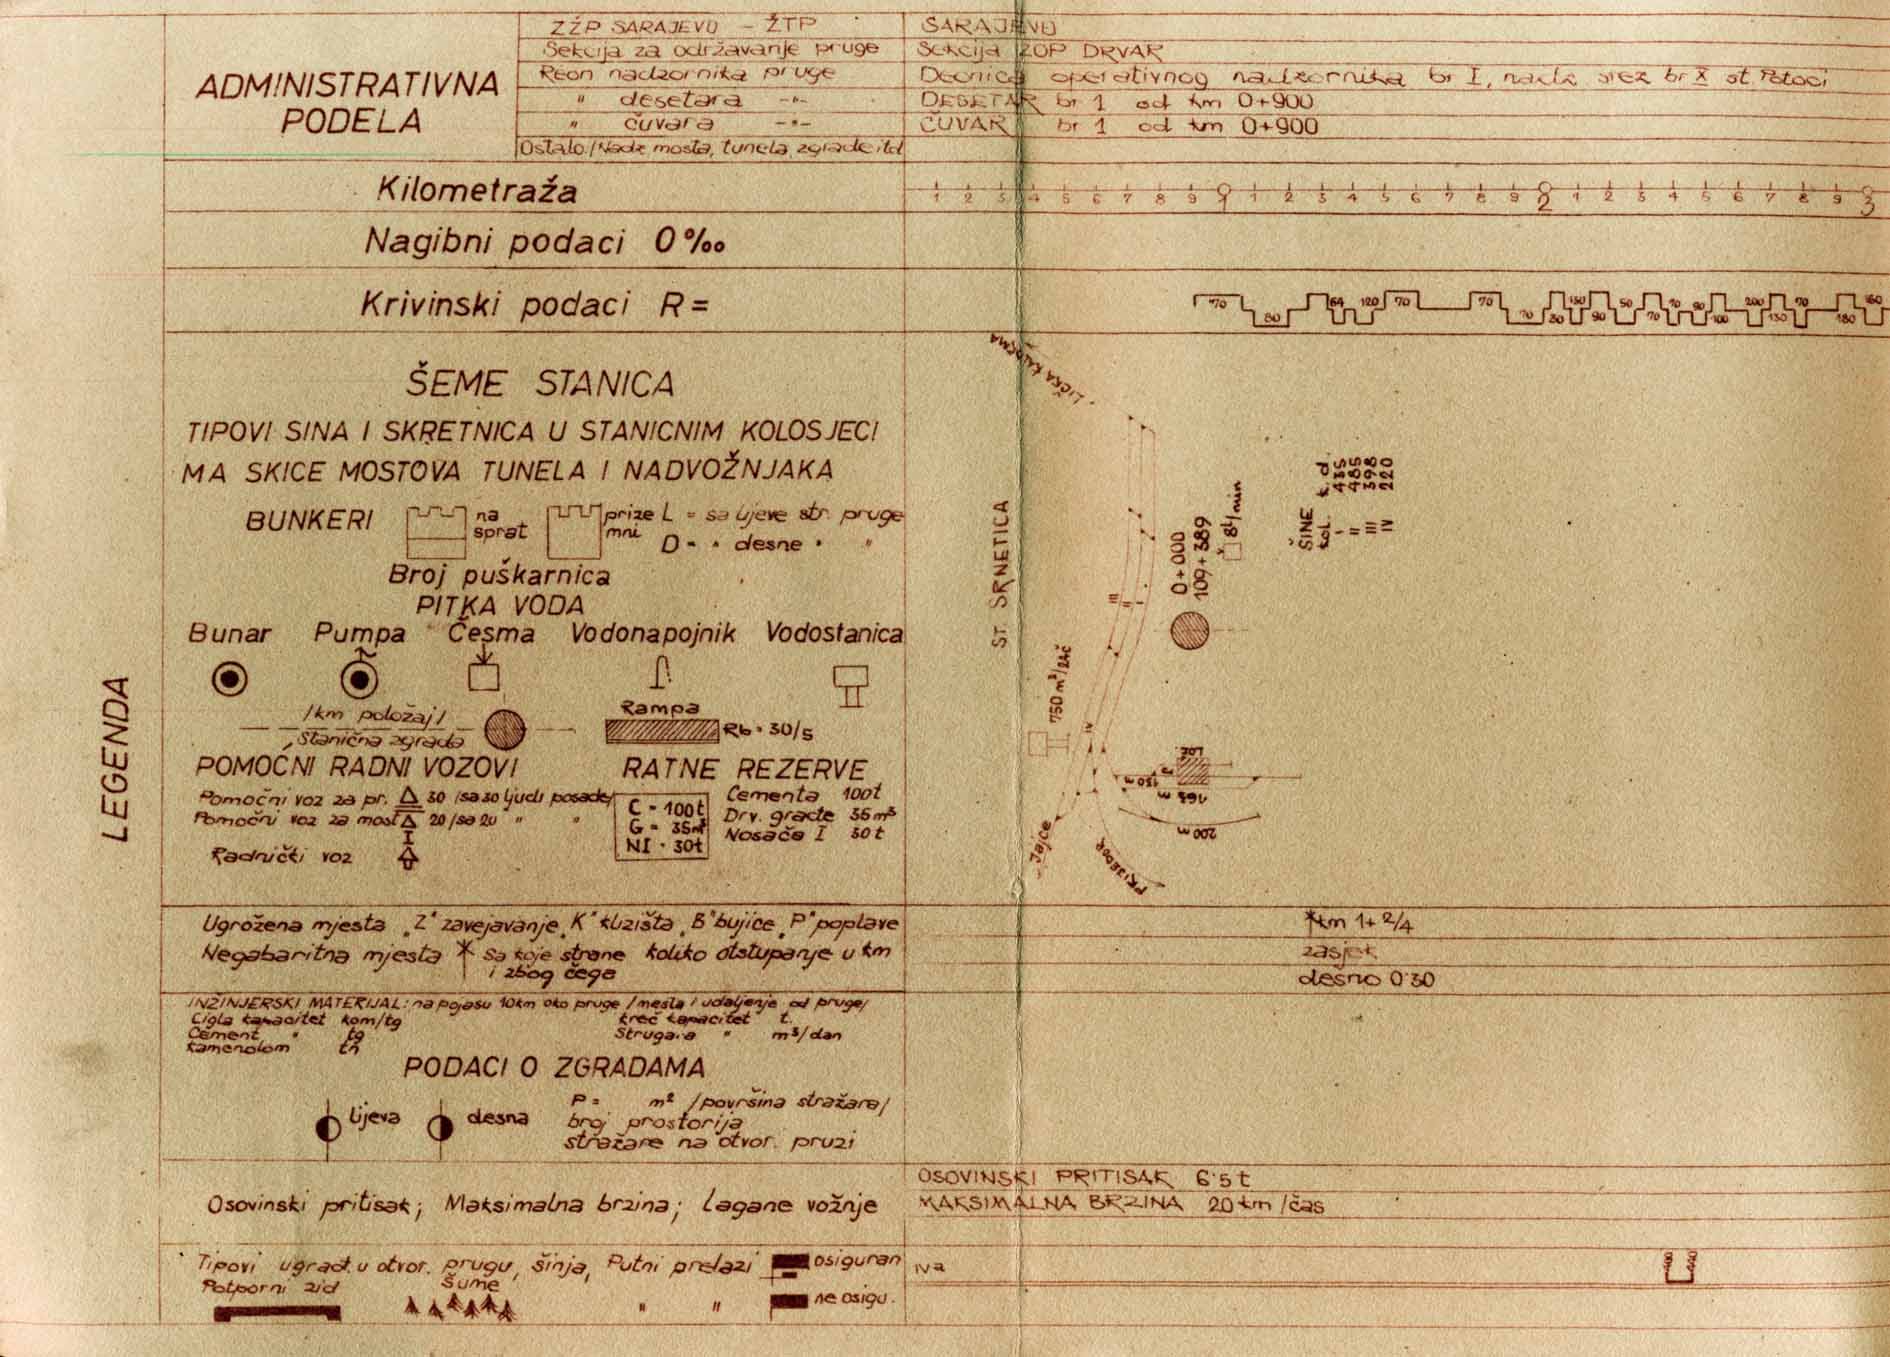 ADMINISTRATIVNA
PODELA
ZŽP SARAJEVO - ŽTP
Sekcija za održavanje pruge
Reon nadzornika pruge
" desetara -"-
" čuvara -"-
Ostalo /Nadz mosta, tunela, zgrade itd
SARAJEVO
Sekcija ZOP DRVAR
Deonica operativnog nadzornika br I, nadz br X st. Potoci
DESETAR br 1 od km 0+900
ČUVAR br 1 od km 0+900
Kilometraža
1 2 3 4 5 6 7 8 9 1 1 2 3 4 5 6 7 8 9 2 1 2 3 4 5 6 7 8 9 3
Nagibni podaci 0‰
Krivinski podaci R =
70 80 64 120 70 70 70 80 150 90 50 70 70 90 100 200 150 70 180 160
LEGENDA
ŠEME STANICA
TIPOVI SINA I SKRETNICA U STANICNIM KOLOSJECI
MA SKICE MOSTOVA TUNELA I NADVOŽNJAKA
BUNKERI
na
sprat
prize
mni
L = sa lijeve str. pruge
D = " desne " "
Broj puškarnica
PITKA VODA
Bunar Pumpa Česma Vodonapojnik Vodostanica
/km položaj/
Stanična zgrada
Rampa
Rb = 30/5
POMOĆNI RADNI VOZOVI
Pomoćni voz za pr. 30 /sa 30 ljudi posade/
Pomoćni voz za most 20 /sa 20 " "
Radnički voz
RATNE REZERVE
C = 100t
G = 35m³
NI = 30t
Cementa 100t
Drv. građe 35m³
Nosača I 30t
LIČKA KALDRMA
ST. SRNETICA
III
II
I
IV
0+000
109+389
8ℓ/min
ŠINE
kol. k. d.
I 435
II 485
III 398
IV 220
750 m³/24č
LOŽ.
130 m
163 m
200 m
Jajce
PRIJEDOR
Ugrožena mjesta „Z" zavejavanje „K" klizišta „B" bujice „P" poplave
Negabaritna mjesta sa koje strane koliko otstupanje u km
i zbog čega
km 1+ 2/4
zasjek
desno 0.30
INŽINJERSKI MATERIJAL: na pojasu 10km oko pruge /mesta i udaljenje od pruge/
Cigla kapacitet kom/tg
kreč kapacitet t.
Cement " tg
Strugara " m³/dan
kamenolom tn
PODACI O ZGRADAMA
lijeva
desna
P= m² /površina stražare/
broj prostorija
stražare na otvor. pruzi
Osovinski pritisak; Maksimalna brzina; Lagane vožnje
OSOVINSKI PRITISAK 6.5 t
MAKSIMALNA BRZINA 20 km/čas
Tipovi ugrad. u otvor. prugu, šinja, Putni prelazi osiguran
Potporni zid
šume
" " ne osigu.
IVa